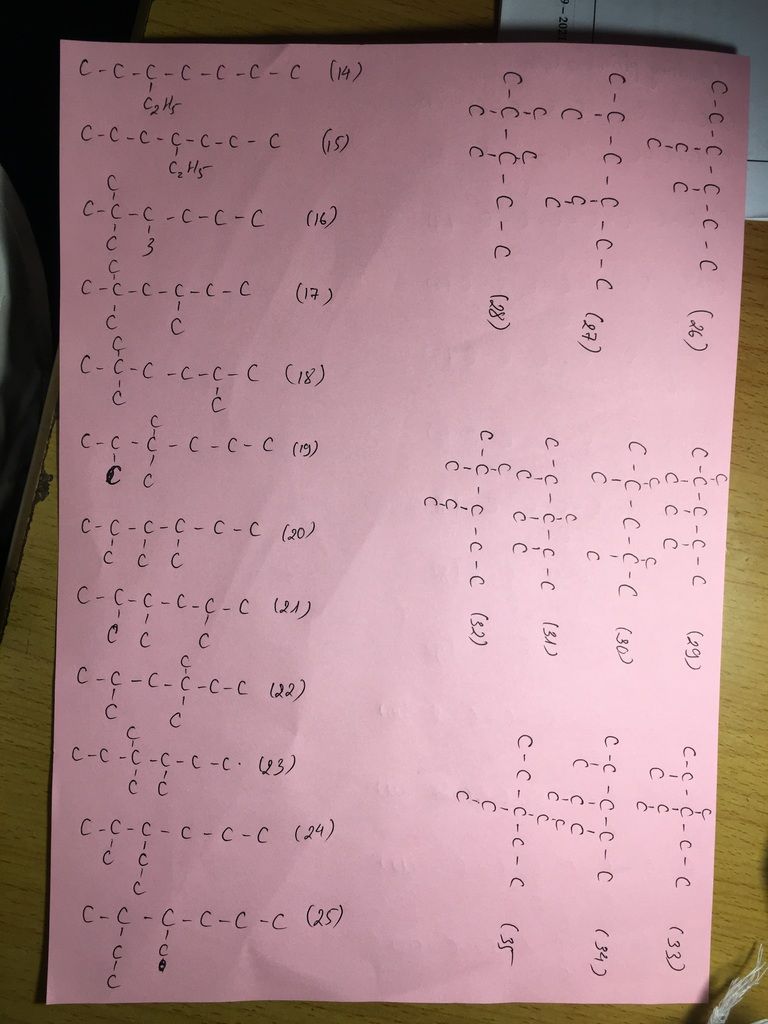 C - C - C - C - C - C - C (14)
C₂H₅
C - C - C - C - C - C - C (15)
C₂H₅
C
C - C - C - C - C - C (16)
C 3
C
C - C - C - C - C - C (17)
C C
C
C - C - C - C - C - C (18)
C C
C
C - C - C - C - C - C (19)
C C
C - C - C - C - C - C (20)
C C C
C - C - C - C - C - C (21)
C C C
C
C - C - C - C - C - C (22)
C C
C
C - C - C - C - C - C. (23)
C C
C - C - C - C - C - C (24)
C C
C
C - C - C - C - C - C (25)
C C
C
C - C - C - C - C - C (26)
C C
C
C - C - C - C - C - C (27)
C
C C
C
C C
C - C - C - C - C (28)
C C
C
C - C - C - C - C (29)
C C C
C C
C - C - C - C - C (30)
C C
C
C - C - C - C - C (31)
C C C
C
C - C - C - C - C (32)
C C
C
C
C - C - C - C - C (33)
C C
C
C - C - C - C - C (34)
C C C
C
C
C
C - C - C - C - C (35
C
C